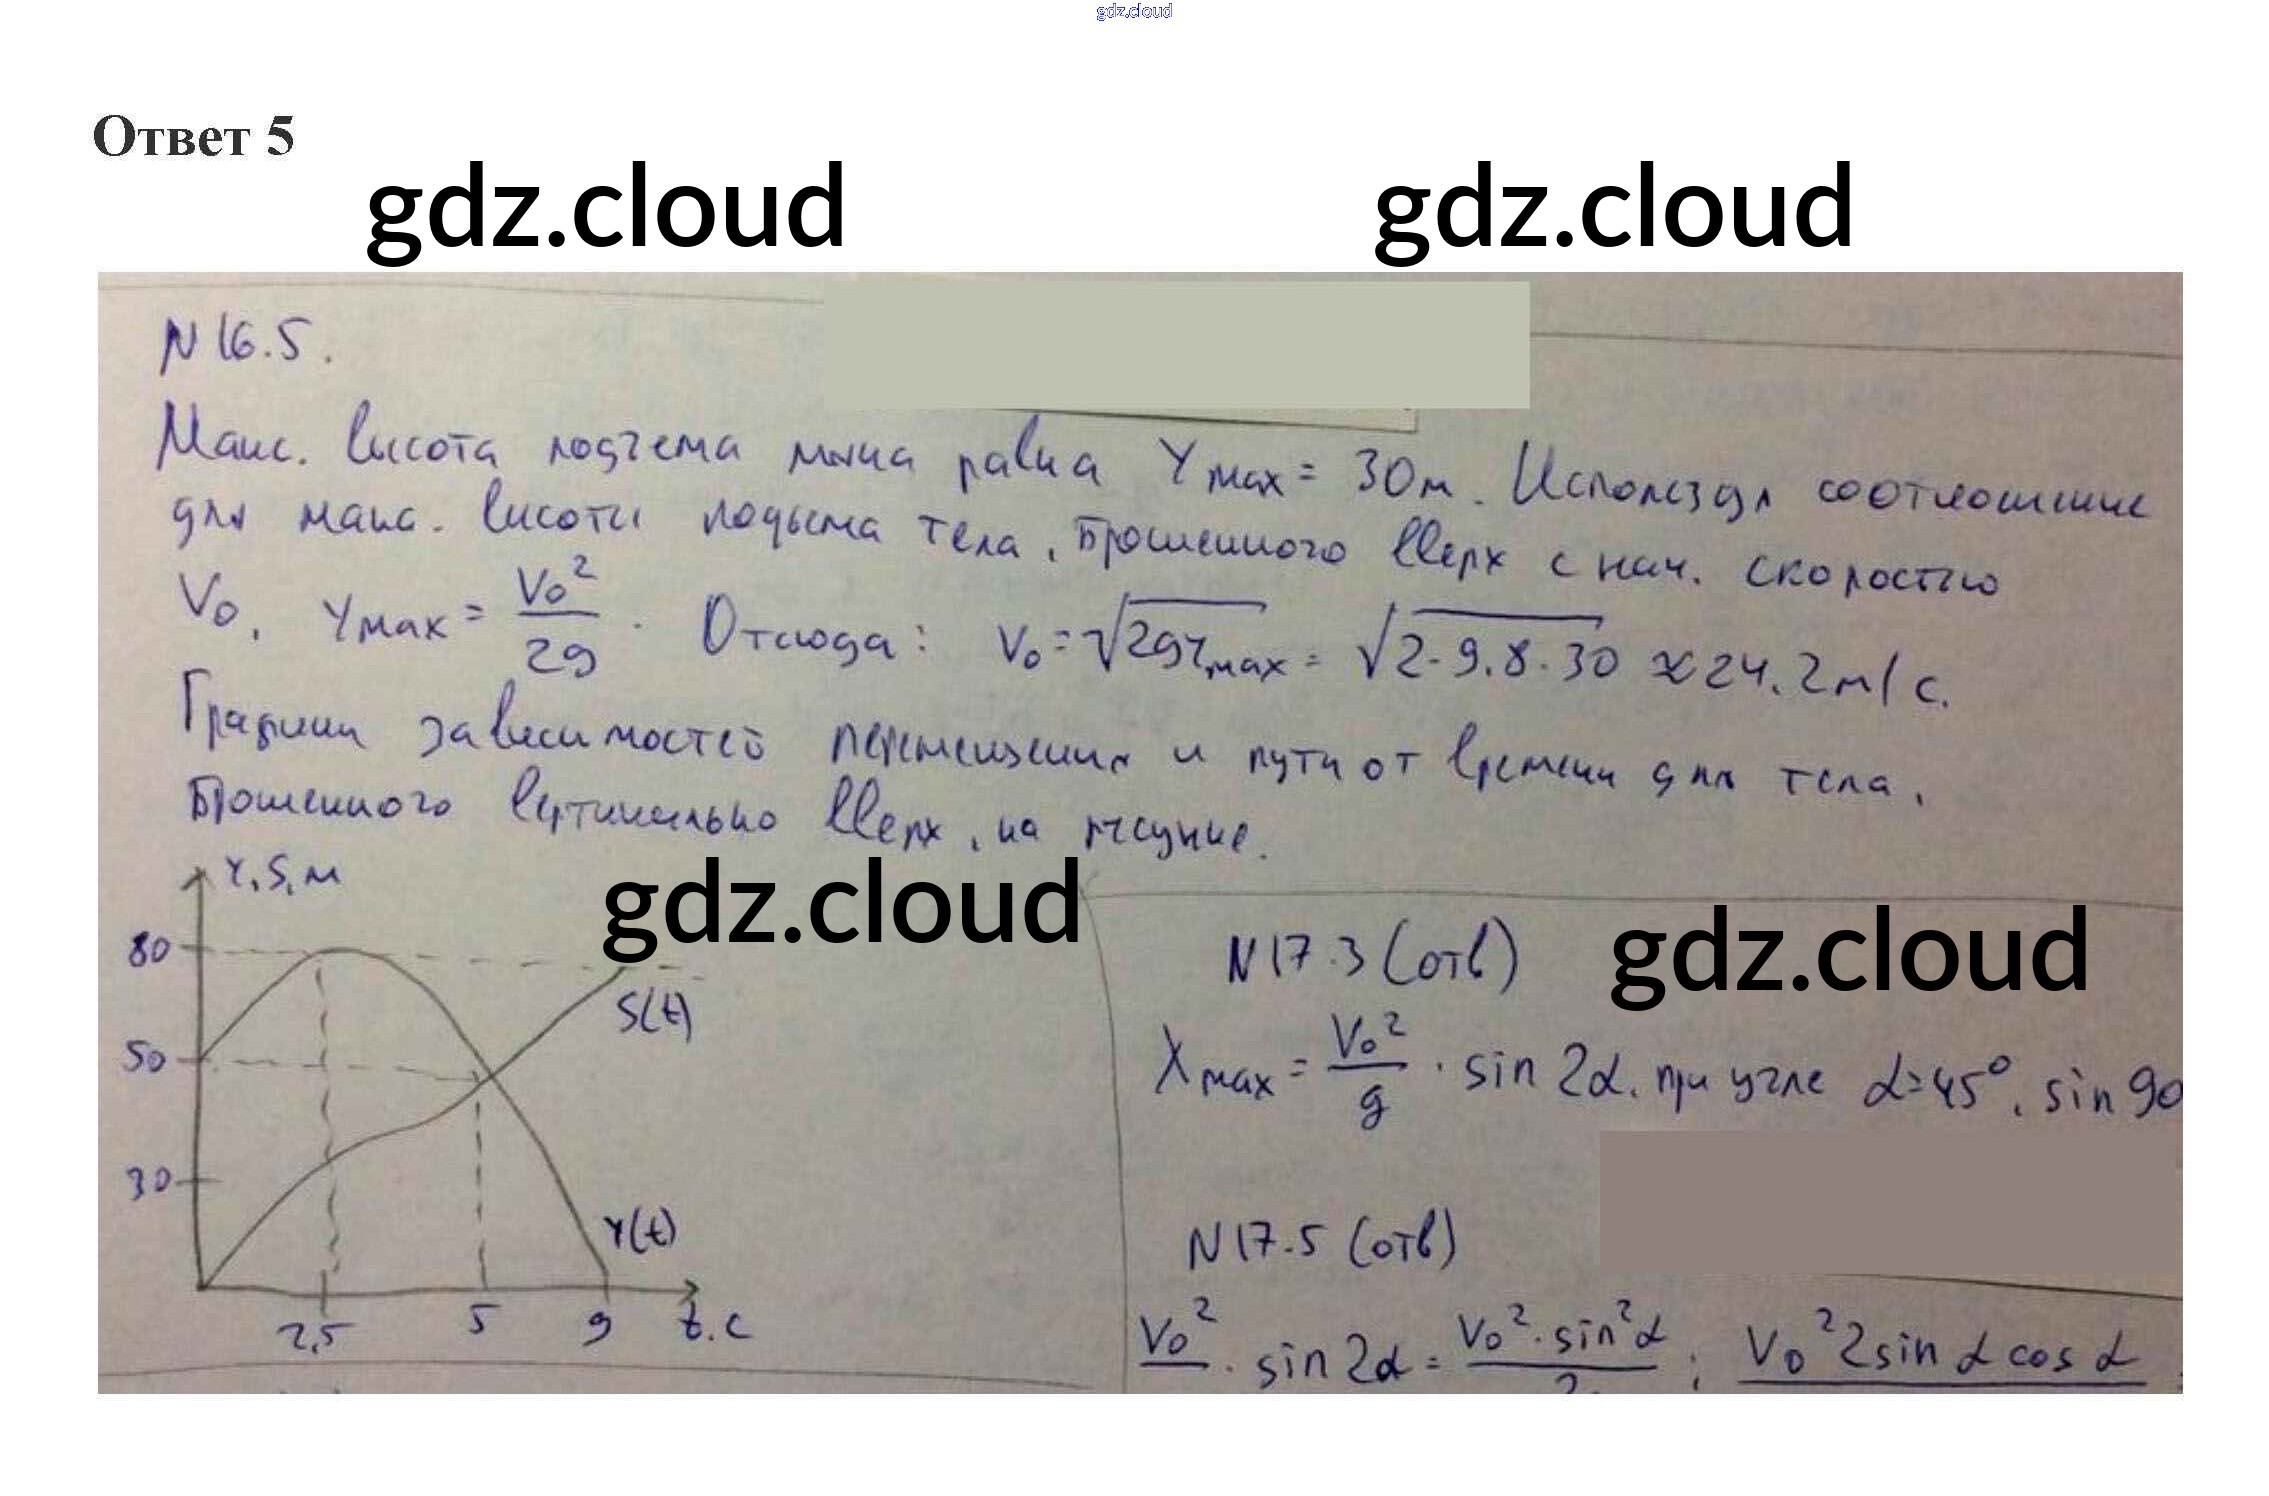 gdz.cloud
Ответ 5
gdz.cloud gdz.cloud
N 16.5.
Макс. высота подъема мяча равна Yмах = 30м. Используя соотношение
для макс. высоты подъема тела, брошенного вверх с нач. скоростью
V₀, Yмах = V₀²/2g. Отсюда: V₀ = √2gYмах = √2·9,8·30 ≈ 24,2м/с.
Графики зависимостей перемещения и пути от времени для тела,
брошенного вертикально вверх, на рисунке.
Y,S,м
gdz.cloud
80
50
30
S(t)
Y(t)
2,5 5 9 t,с
N 17.3 (отв)
gdz.cloud
Xмах = V₀²/g · sin 2α, при угле α=45°, sin 90
N 17.5 (отв)
V₀² · sin 2α = V₀²·sin²α ; V₀² 2sin α cos α